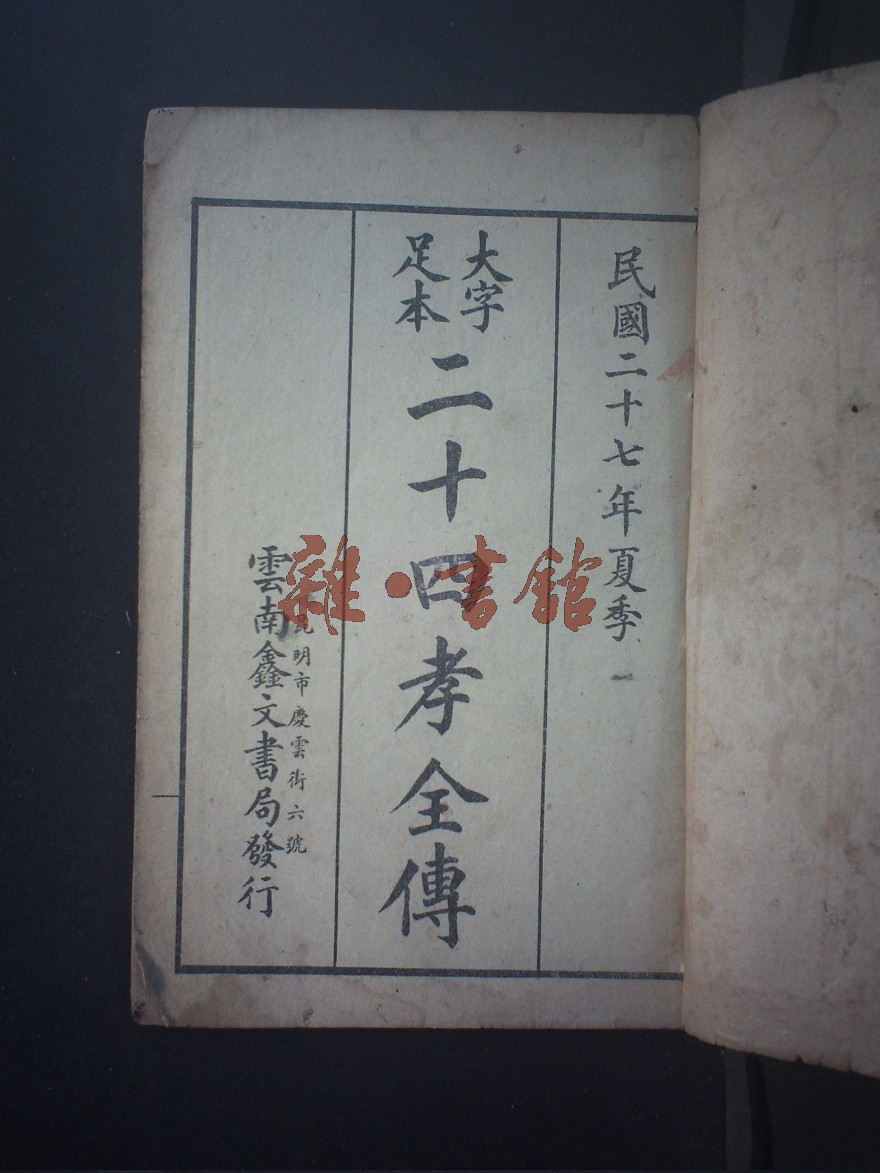 民國二十七年夏季
大字
足本
二十四孝全傳
昆明市慶雲街六號
雲南鑫文書局發行
雜·書館